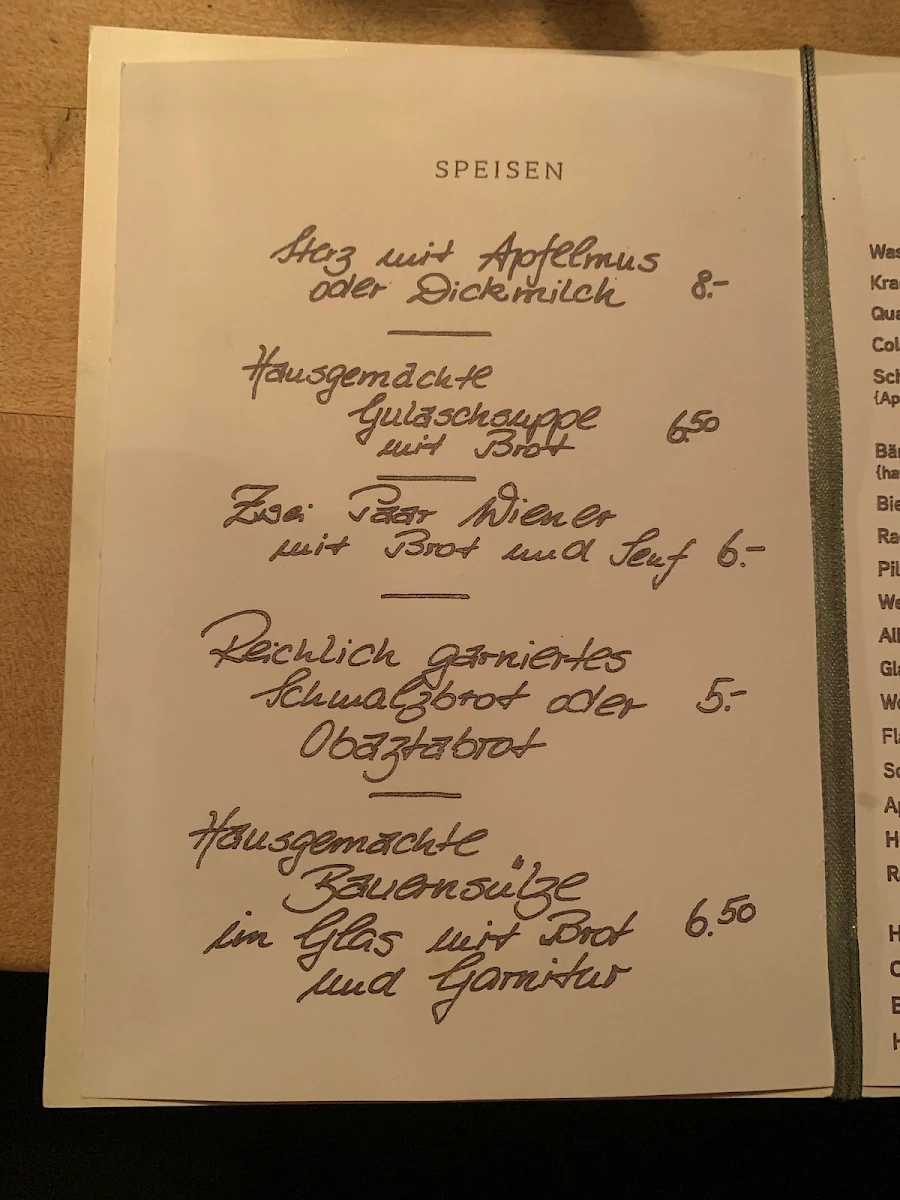 SPEISEN
Sterz mit Apfelmus
oder Dickmilch 8.-
Hausgemachte
Gulaschsuppe 6.50
mit Brot
Zwei Paar Wiener
mit Brot und Senf 6.-
Reichlich garniertes
Schmalzbrot oder 5.-
Obaztabrot
Hausgemachte
Bauernsülze
im Glas mit Brot 6.50
und Garnitur
Was
Kra
Qua
Col
Sch
(Ap
Bär
(ha
Bie
Ra
Pil
We
Alk
Gla
We
Fla
Sc
Ap
H
R
H
H